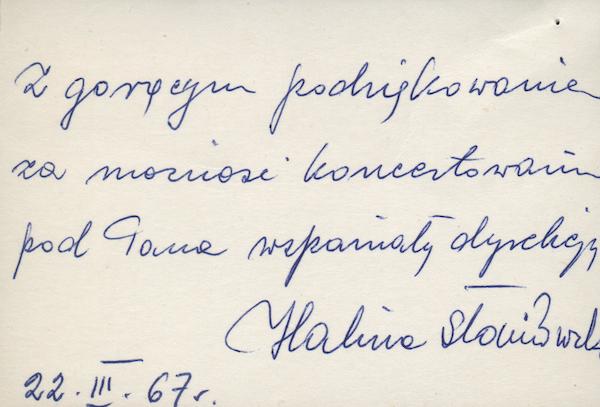 Z gorącym podziękowaniem
za możność koncertowania
pod Pana wspaniałą dyrekcją
Halina Słonicka
22.III.67r.